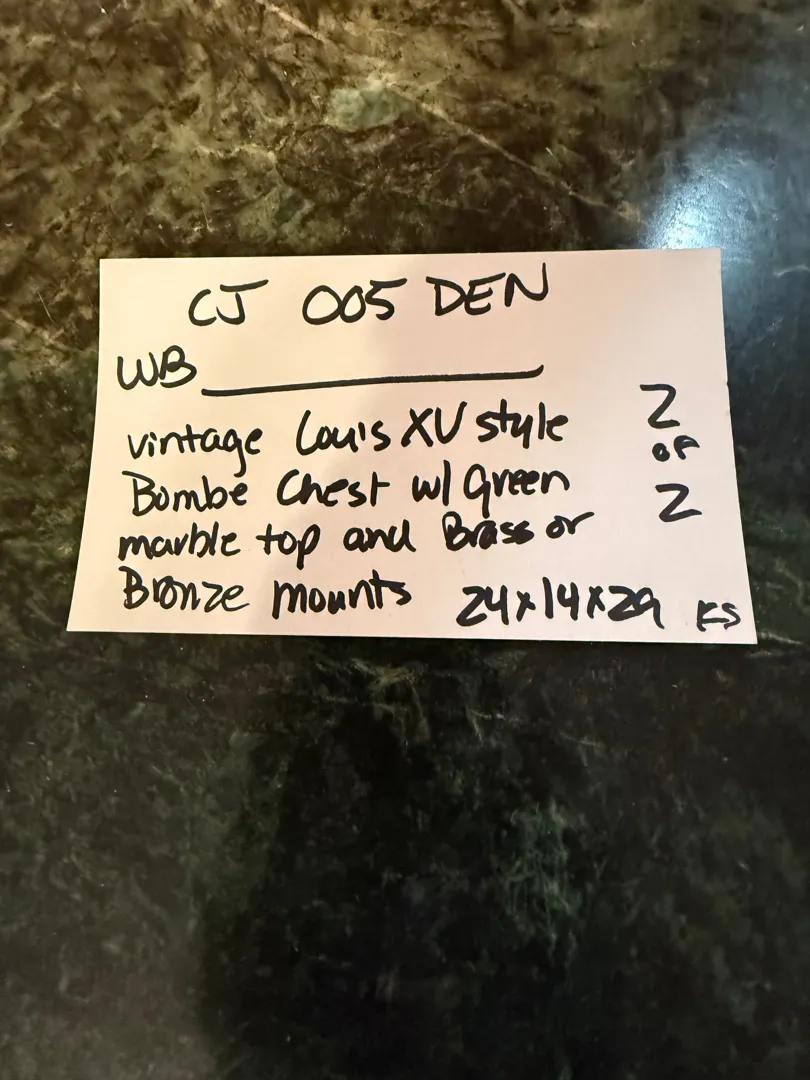 CJ 005 DEN
WB
vintage Louis XV style
Bombe Chest w/ Green
marble top and Brass or
Bronze mounts 24x14x29 KS
2
of
2